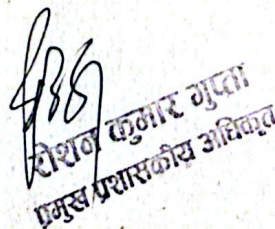 रोशन कुमार गुप्ता
प्रमुख प्रशासकीय अधिकृत